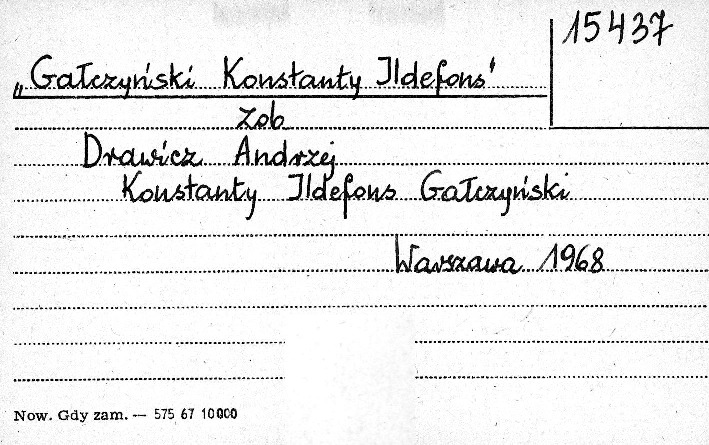 15437
„Gałczyński Konstanty Ildefons"
zob
Drawicz Andrzej
Konstanty Ildefons Gałczyński
Warszawa 1968
Now. Gdy zam. — 575 67 10000